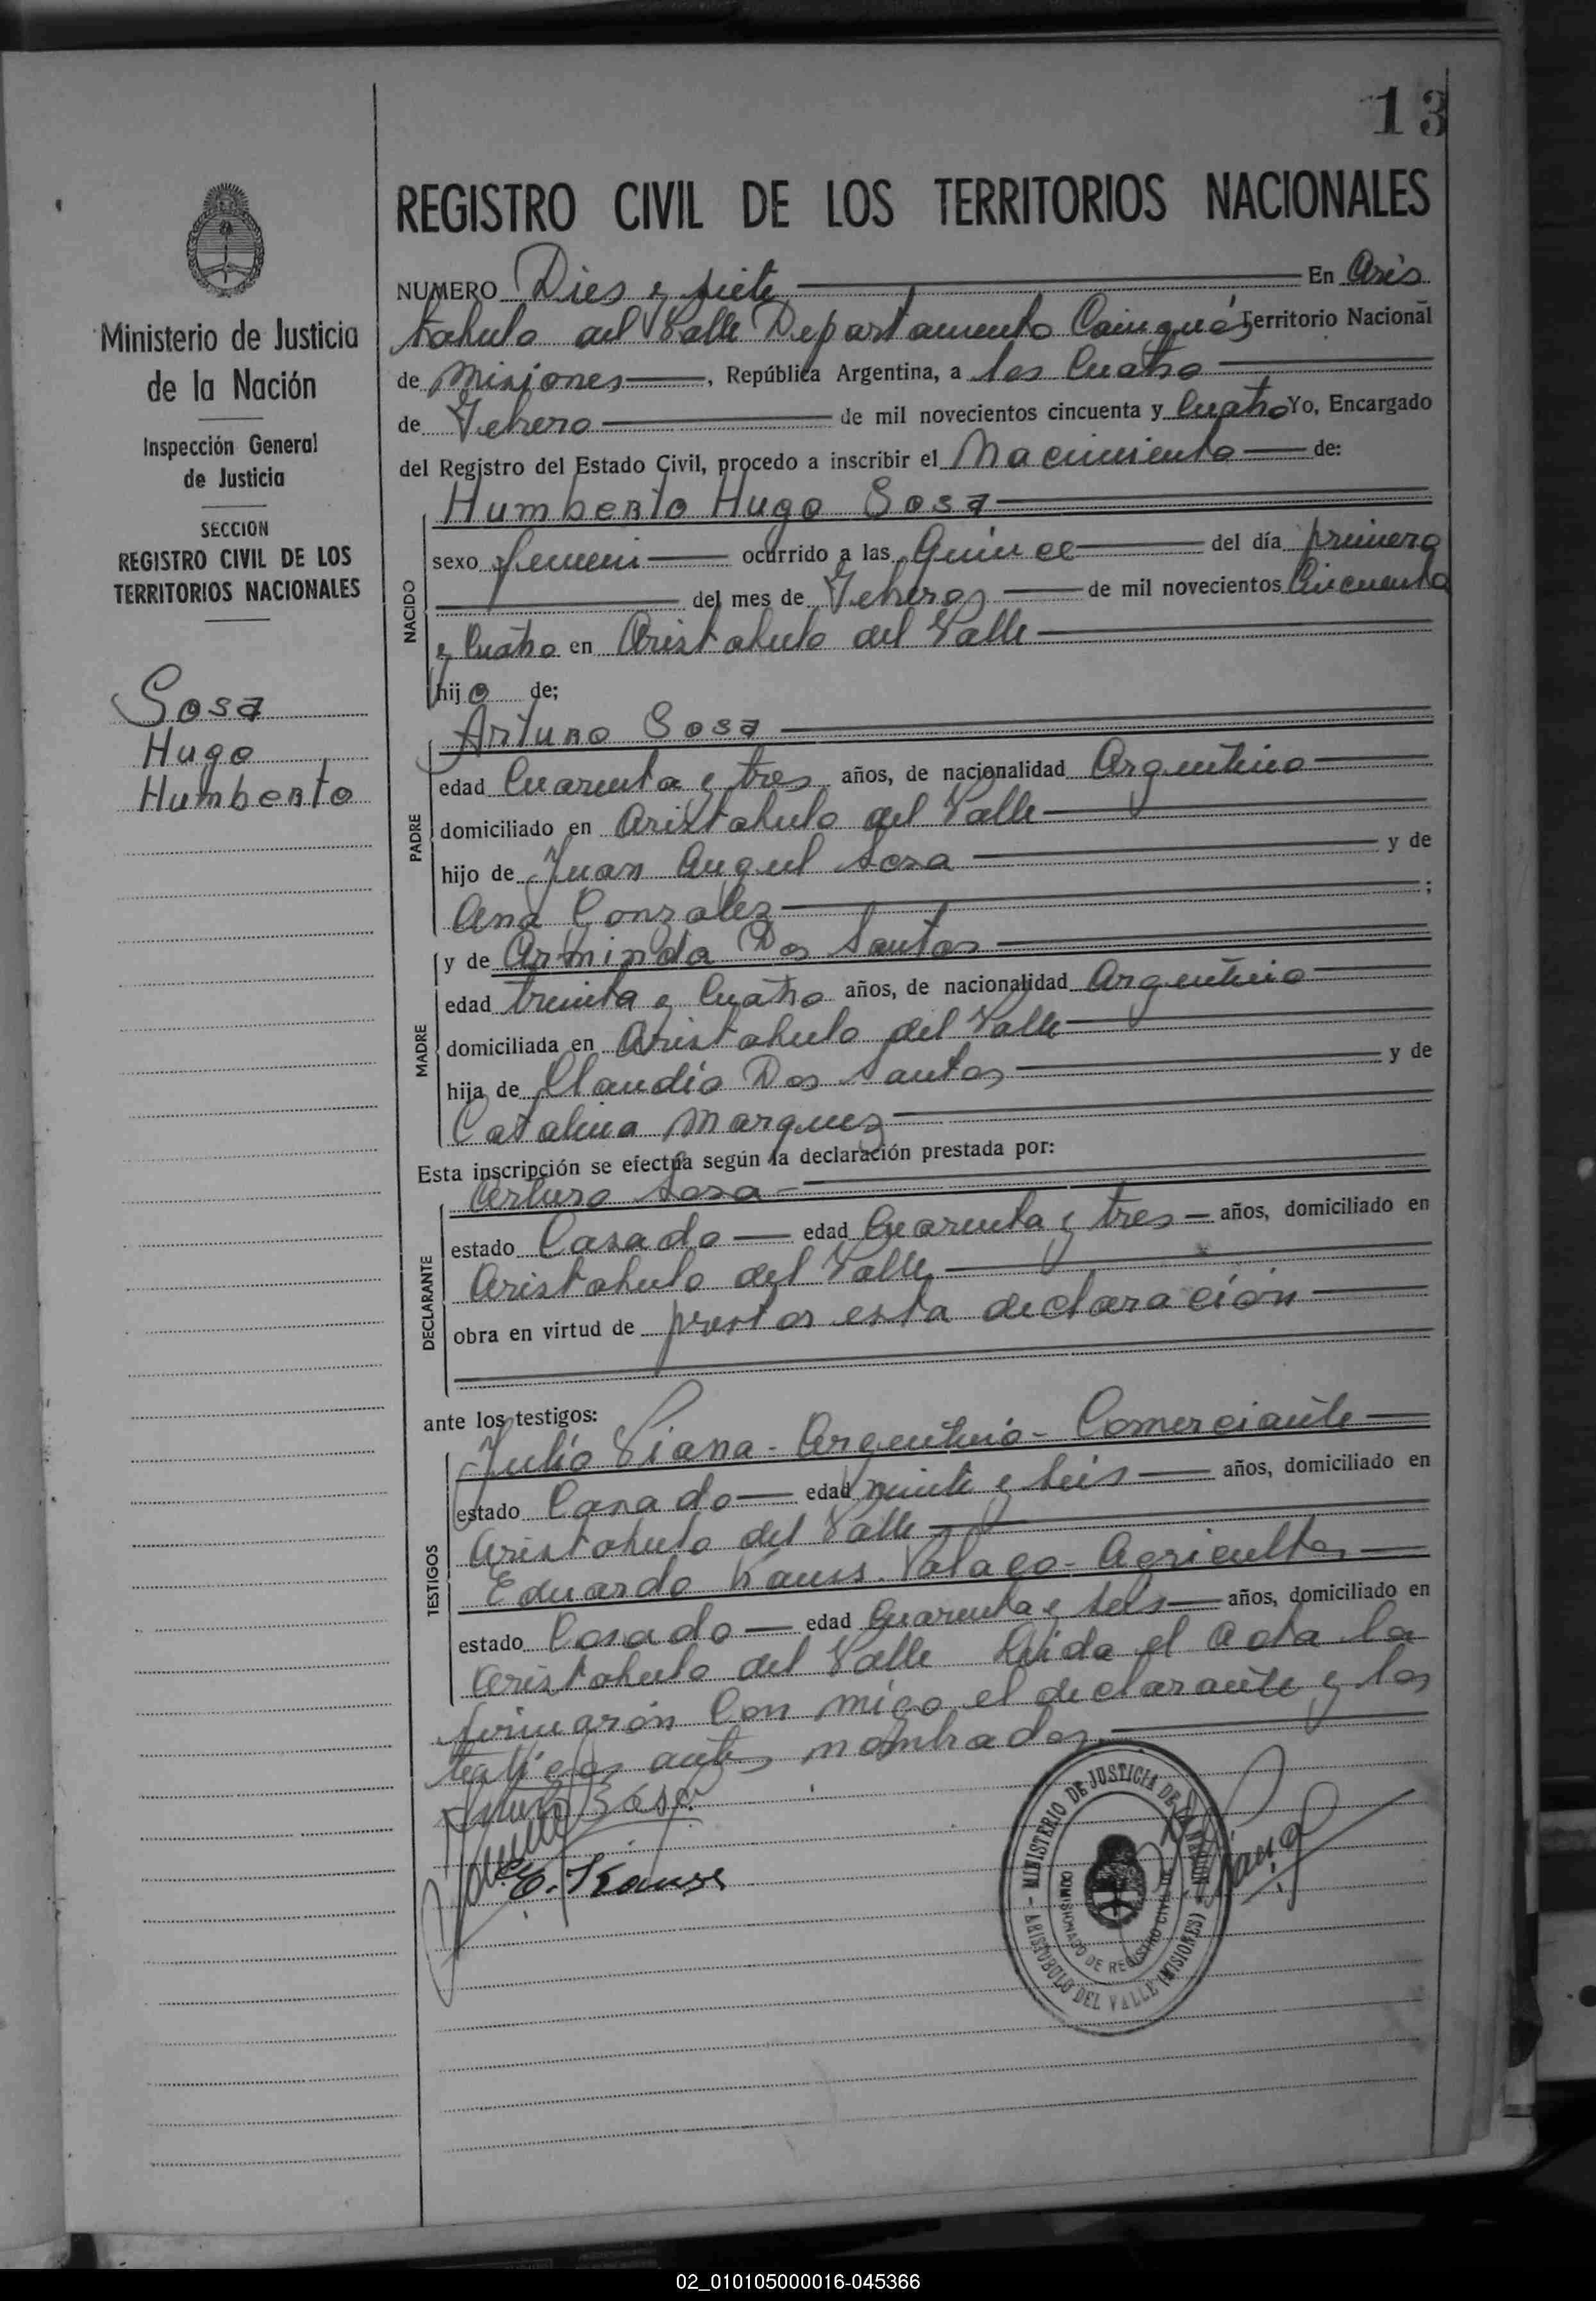 13
REGISTRO CIVIL DE LOS TERRITORIOS NACIONALES
Ministerio de Justicia
de la Nación
Inspección General
de Justicia
SECCION
REGISTRO CIVIL DE LOS
TERRITORIOS NACIONALES
Sosa
Hugo
Humberto
NUMERO Dies y siete En Aris
tobulo del Valle Departamento Cainguás Territorio Nacional
de Misiones, República Argentina, a los Cuatro
de Febrero de mil novecientos cincuenta y Cuatro Yo, Encargado
del Registro del Estado Civil, procedo a inscribir el Nacimiento de:
NACIDO
Humberto Hugo Sosa
sexo femeni ocurrido a las Quince del día primero
del mes de Febrero de mil novecientos Cincuenta
y Cuatro en Aristobulo del Valle
hijo de;
PADRE
Arturo Sosa
edad Cuarenta y tres años, de nacionalidad Argentino
domiciliado en Aristobulo del Valle
hijo de Juan Angel Sosa y de
Ana Gonzalez ;
MADRE
y de Arminda Dos Santos
edad treinta y Cuatro años, de nacionalidad Argentino
domiciliada en Aristobulo del Valle
hija de Claudio Dos Santos y de
Catalina Marquez
Esta inscripción se efectúa según la declaración prestada por:
DECLARANTE
Arturo Sosa
estado Casado edad Cuarenta y tres años, domiciliado en
Aristobulo del Valle
obra en virtud de prestar esta declaración
ante los testigos:
TESTIGOS
Julio Piana - Argentino - Comerciante
estado Casado edad veinte y seis años, domiciliado en
Aristobulo del Valle
Eduardo Kauss. Polaco - Agricultor
estado Casado edad Cuarenta y seis años, domiciliado en
Aristobulo del Valle Leida el Acta la
firmarón Con migo el declarante y los
testigos antes nombrados
Arturo Sosa
E. Kauss
MINISTERIO DE JUSTICIA DE LA NACION
COMISIONADO DE REGISTRO CIVIL DE
ARISTOBULO DEL VALLE (MISIONES)
02_010105000016-045366